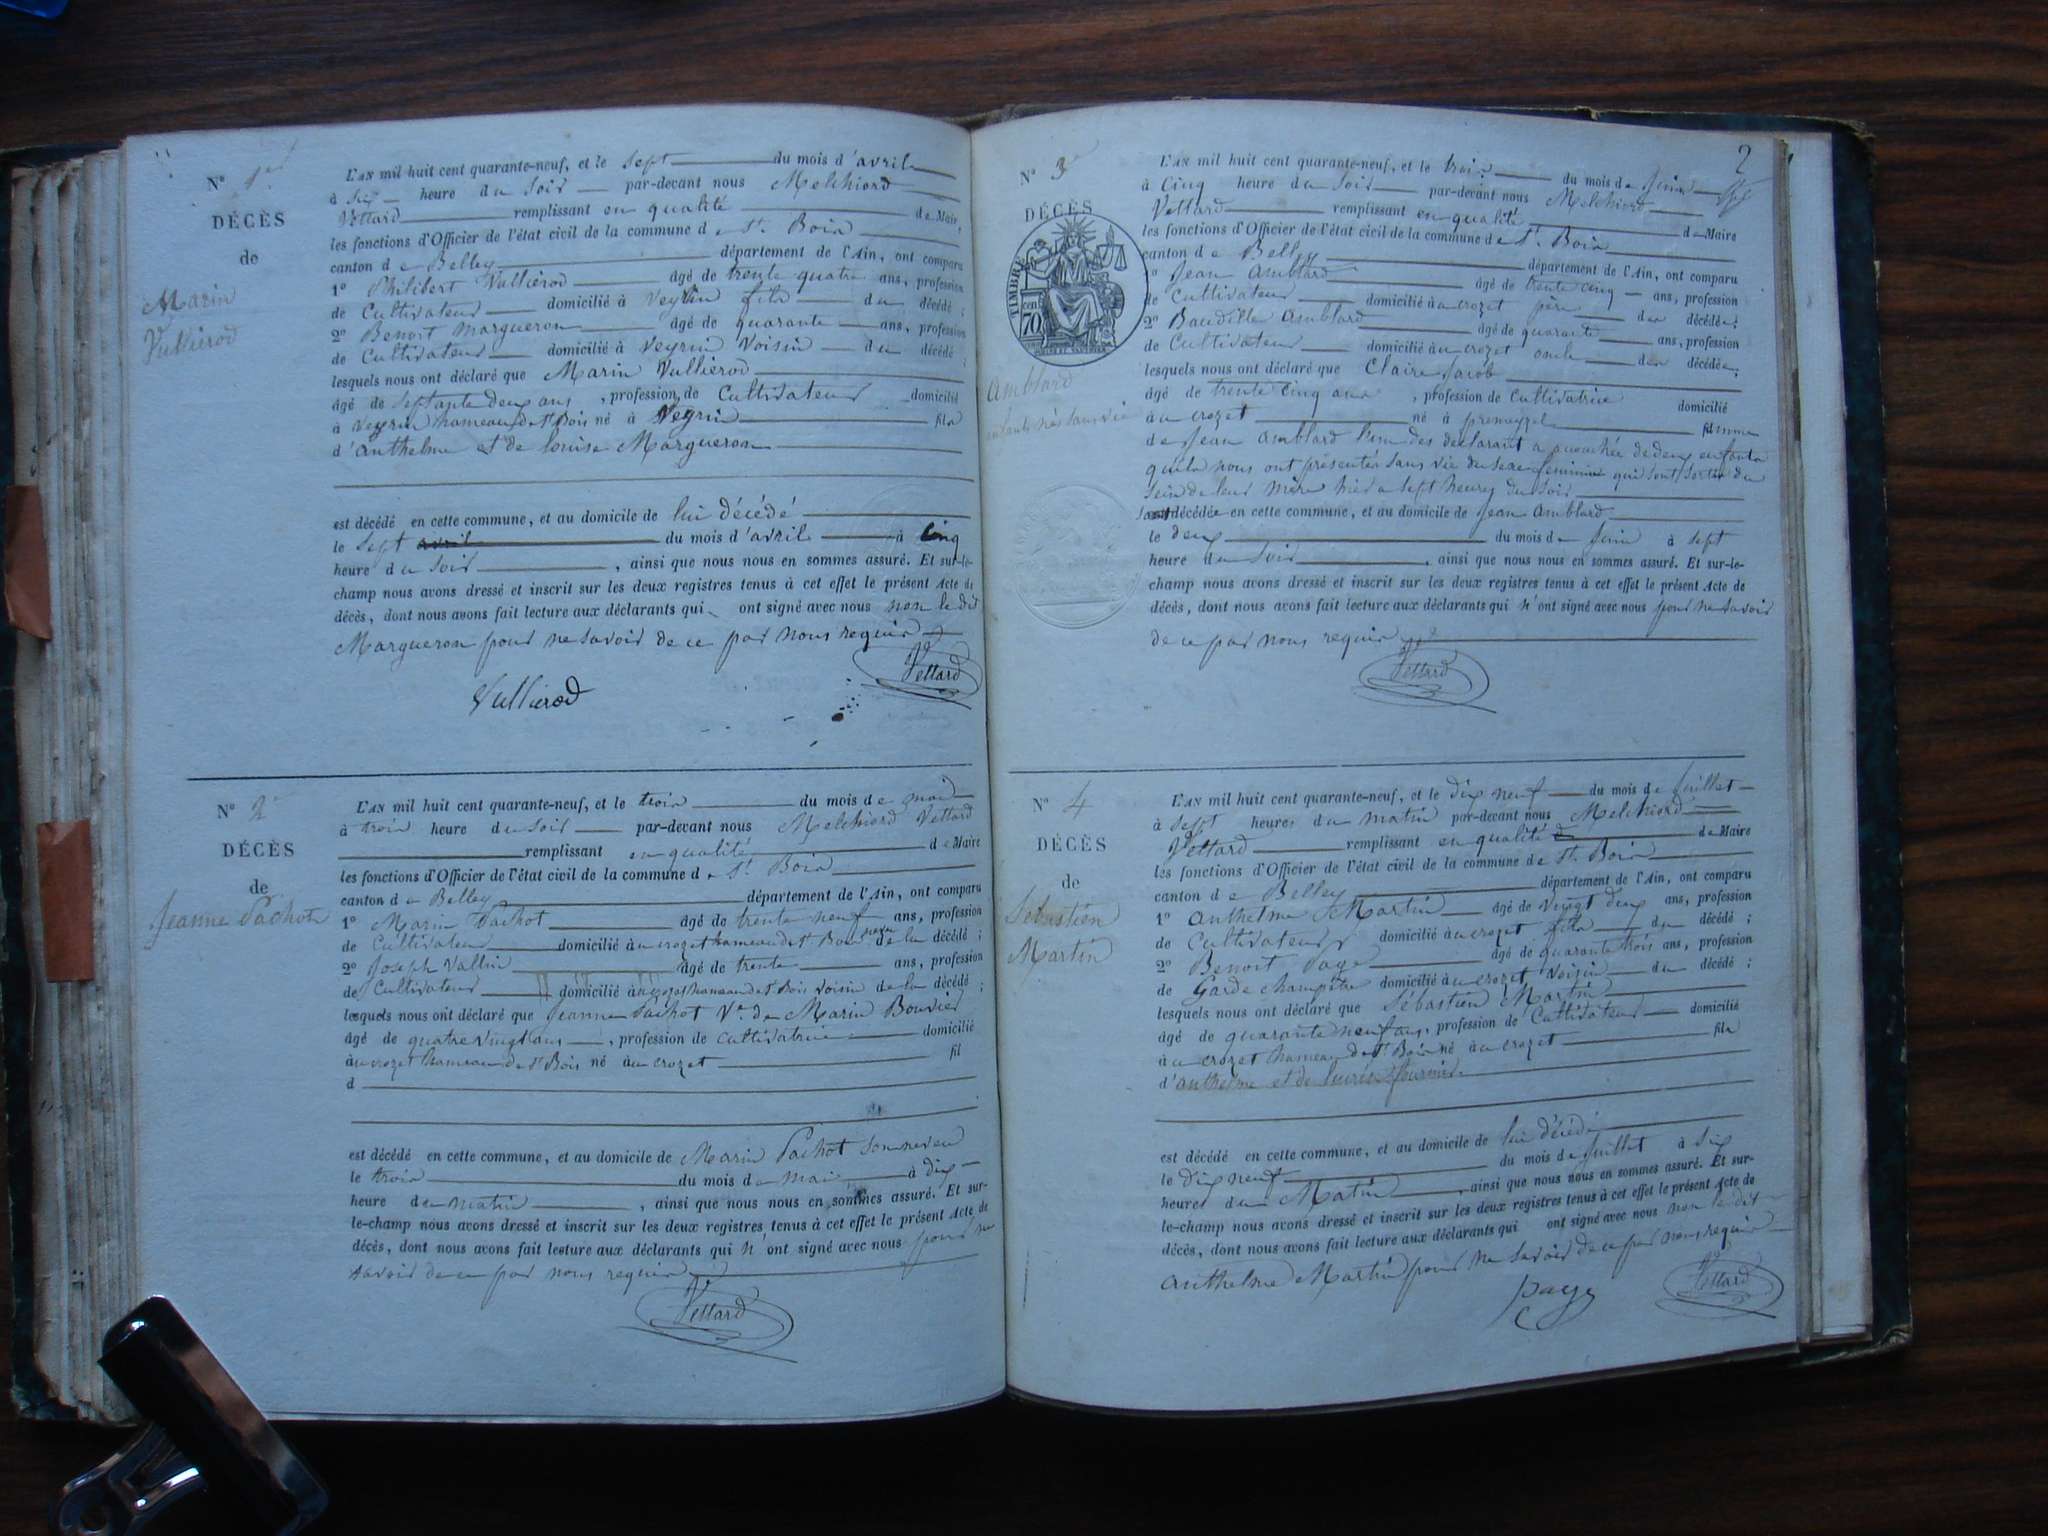 N° 1er
DÉCÈS
de
Marin
Vullierod
L'AN mil huit cent quarante-neuf, et le sept du mois d'avril
à six heure du soir par-devant nous Melchiord
Vettard remplissant en qualité de Maire
les fonctions d'Officier de l'état civil de la commune de St. Bois
canton de Belley département de l'Ain, ont comparu
1° Philibert Vullierod âgé de trente quatre ans, profession
de Cultivateur domicilié à Veyrin fils du décédé ;
2° Benoit Margueron âgé de quarante ans, profession
de Cultivateur domicilié à Veyrin Voisin du décédé ;
lesquels nous ont déclaré que Marin Vullierod
âgé de septante deux ans , profession de Cultivateur domicilié
à Veyrin hameau de St Bois né à Veyrin fils
d'anthelme et de louise Margueron
est décédé en cette commune, et au domicile de lui décédé
le sept avril du mois d'avril à Cinq
heure du soir , ainsi que nous nous en sommes assuré. Et sur-le-
champ nous avons dressé et inscrit sur les deux registres tenus à cet effet le présent Acte de
décès, dont nous avons fait lecture aux déclarants qui ont signé avec nous non le dit
Margueron pour ne savoir de ce par nous requis
Vettard
Vullierod
N° 2
DÉCÈS
de
Jeanne Pachot
L'AN mil huit cent quarante-neuf, et le trois du mois de mai
à trois heure du soir par-devant nous Melchiord Vettard
remplissant en qualité de Maire
les fonctions d'Officier de l'état civil de la commune de St. Bois
canton de Belley département de l'Ain, ont comparu
1° Marin Pachot âgé de trente neuf ans, profession
de Cultivateur domicilié au crozet hameau de St Bois neveu de la décédé ;
2° Joseph Vallin âgé de trente ans, profession
de Cultivateur domicilié au crozet hameau de St Bois voisin de la décédé ;
lesquels nous ont déclaré que Jeanne Pachot Ve de Marin Bouvier
âgé de quatre vingt ans , profession de cultivatrice domicilié
au crozet hameau de St Bois né au crozet fil
d
est décédé en cette commune, et au domicile de Marin Pachot son neveu
le trois du mois de mai à dix
heure du matin , ainsi que nous nous en sommes assuré. Et sur-
le-champ nous avons dressé et inscrit sur les deux registres tenus à cet effet le présent Acte de
décès, dont nous avons fait lecture aux déclarants qui n'ont signé avec nous pour ne
savoir de ce par nous requis
Vettard
2
N° 3
DÉCÈS
TIMBRE
70
Amblard
enfants nés sans vie
L'AN mil huit cent quarante-neuf, et le trois du mois de juin
à Cinq heure du soir par-devant nous Melchiord
Vettard remplissant en qualité de Maire
les fonctions d'Officier de l'état civil de la commune de St. Bois
canton de Belley département de l'Ain, ont comparu
1° Jean Amblard âgé de trente cinq ans, profession
de Cultivateur domicilié au crozet père des décédés ;
2° Baudille Amblard âgé de quarante ans, profession
de Cultivateur domicilié au crozet oncle des décédés ;
lesquels nous ont déclaré que Claire Jacob
âgé de trente cinq ans , profession de Cultivatrice domicilié
au crozet né à premeyzel femme
de Jean Amblard l'un des declarant a accouchée de deux enfants
quils nous ont présentés sans vie du sexe feminin qui sont sortis du
sein de leur mère hier a sept heures du soir
sont décédée en cette commune, et au domicile de Jean Amblard
le deux du mois de juin à sept
heure du soir , ainsi que nous nous en sommes assuré. Et sur-le-
champ nous avons dressé et inscrit sur les deux registres tenus à cet effet le présent Acte de
décès, dont nous avons fait lecture aux déclarants qui n'ont signé avec nous pour ne savoir
de ce par nous requis
Vettard
N° 4
DÉCÈS
de
Sébastien
Martin
L'AN mil huit cent quarante-neuf, et le dix neuf du mois de juillet
à sept heures du matin par-devant nous Melchiord
Vettard remplissant en qualité de Maire
les fonctions d'Officier de l'état civil de la commune de St. Bois
canton de Belley département de l'Ain, ont comparu
1° anthelme Martin âgé de vingt deux ans, profession
de Cultivateur domicilié au crozet fils du décédé ;
2° Benoit Paye âgé de quarante trois ans, profession
de Garde champêtre domicilié au crozet voisin du décédé ;
lesquels nous ont déclaré que Sébastien Martin
âgé de quarante neuf ans, profession de Cultivateur domicilié
au crozet hameau de St Bois né au crozet fils
d'anthelme et de
est décédé en cette commune, et au domicile de lui décédé
le dix neuf du mois de juillet à six
heures du Matin , ainsi que nous nous en sommes assuré. Et sur-
le-champ nous avons dressé et inscrit sur les deux registres tenus à cet effet le présent Acte de
décès, dont nous avons fait lecture aux déclarants qui ont signé avec nous non le dit
anthelme Martin pour ne savoir de ce par nous requis
paye
Vettard